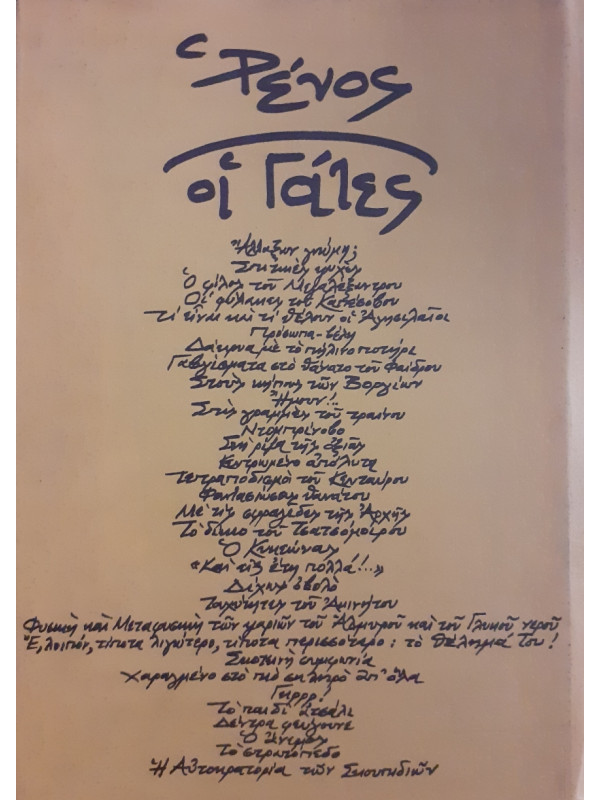 Ὁ Ρένος
οἱ Γάτες
Ἄλλαξαν γνώμη;
Σπιτικὲς ψυχὲς
Ὁ φίλος τοῦ Μεγαλέξαντρου
Οἱ φύλακες τοῦ Καπέσοβου
Τί εἶναι καὶ τί θέλουν οἱ Ἀγησιλαῖοι
Πρόσωπα-βέλη
Δάκρυα μὲ τὸ πήλινο ποτήρι
Γαβγίσματα στὸ θάνατο τοῦ Φαίδρου
Στοὺς κήπους τῶν Βοργίων
Ἤμουν!..
Στὶς γραμμὲς τοῦ τραίνου
Ντομπρίνοβο
Στὴ ρίζα τῆς ὀξιᾶς
Κεντρωμένο ἀπόλυτα
Τετραποδισμοὶ τοῦ Κενταύρου
Φαντασιώσεις θανάτου
Μὲ τὶς σφραγίδες τῆς Ἀρχῆς
Τὸ δίκιο τοῦ Τσατσόμοιρου
Ὁ Κυητώνας
«Καὶ εἰς ἔτη πολλά!...»
Δίχως ὀβολὸ
Ταχύτητες τοῦ Ἀμινήτου
Φυσικὴ καὶ Μεταφυσικὴ τῶν ψαριῶν τοῦ Ἁλμυροῦ καὶ τοῦ Γλυκοῦ νεροῦ
Ἔ, λοιπόν, τίποτα λιγώτερο, τίποτα περισσότερο: τὸ θέλημά Του!
Σκοτεινὴ συμφωνία
Χαραγμένο στὸ πιὸ σκληρὸ ἀπ' ὅλα
Γκρρρ!
Τὸ παιδὶ ἀτσάλι
Δέντρα φεύγουνε
Ὁ Ἀνεμος
Τὸ στρατόπεδο
Ἡ Αὐτοκρατορία τῶν Σκουπιδιῶν